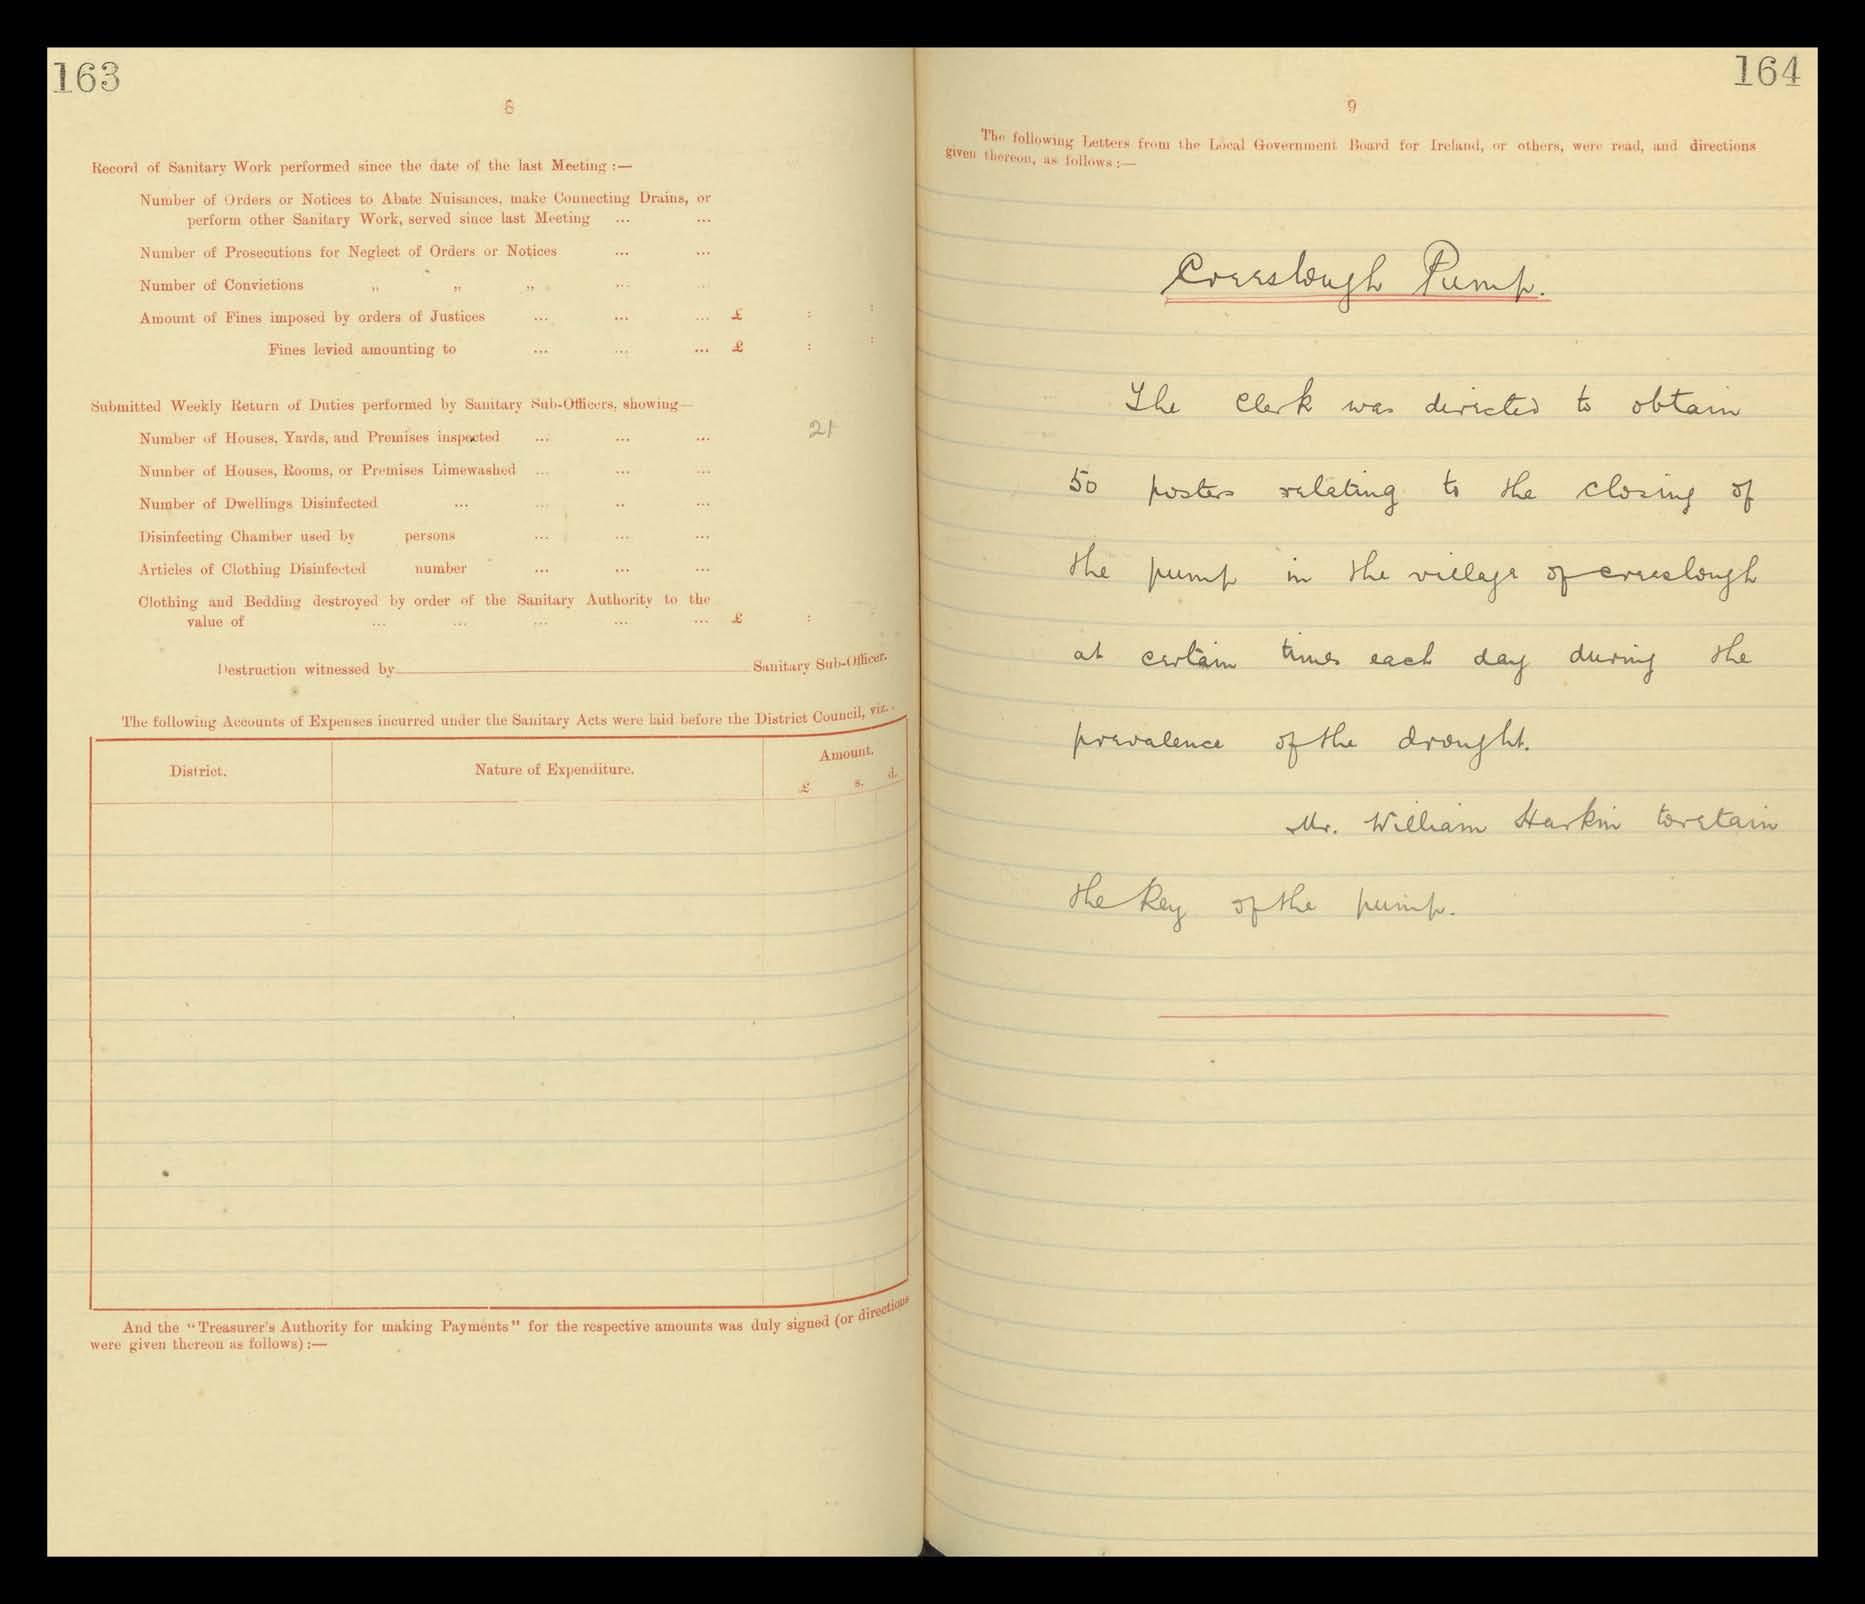 163
8
Record of Sanitary Work performed since the date of the last Meeting :—
Number of Orders or Notices to Abate Nuisances, make Connecting Drains, or
perform other Sanitary Work, served since last Meeting ... ...
Number of Prosecutions for Neglect of Orders or Notices ... ...
Number of Convictions „ „ „ ... ...
Amount of Fines imposed by orders of Justices ... ... ... £ : :
Fines levied amounting to ... ... ... £ : :
Submitted Weekly Return of Duties performed by Sanitary Sub-Officers, showing—
Number of Houses, Yards, and Premises inspected ... ... ... 21
Number of Houses, Rooms, or Premises Limewashed ... ... ...
Number of Dwellings Disinfected ... ... ... ...
Disinfecting Chamber used by persons ... ... ...
Articles of Clothing Disinfected number ... ... ...
Clothing and Bedding destroyed by order of the Sanitary Authority to the
value of ... ... ... ... ... £ : :
Destruction witnessed by Sanitary Sub-Officer.
The following Accounts of Expenses incurred under the Sanitary Acts were laid before the District Council, viz. :
District. Nature of Expenditure. Amount.
£ s. d.
And the "Treasurer's Authority for making Payments" for the respective amounts was duly signed (or directions
were given thereon as follows) :—
164
9
The following Letters from the Local Government Board for Ireland, or others, were read, and directions
given thereon, as follows :—
Creeslough Pump.
The Clerk was directed to obtain
50 posters relating to the closing of
the pump in the village of creeslough
at certain times each day during the
prevalence of the drought.
Mr. William Harkin to retain
the key of the pump.